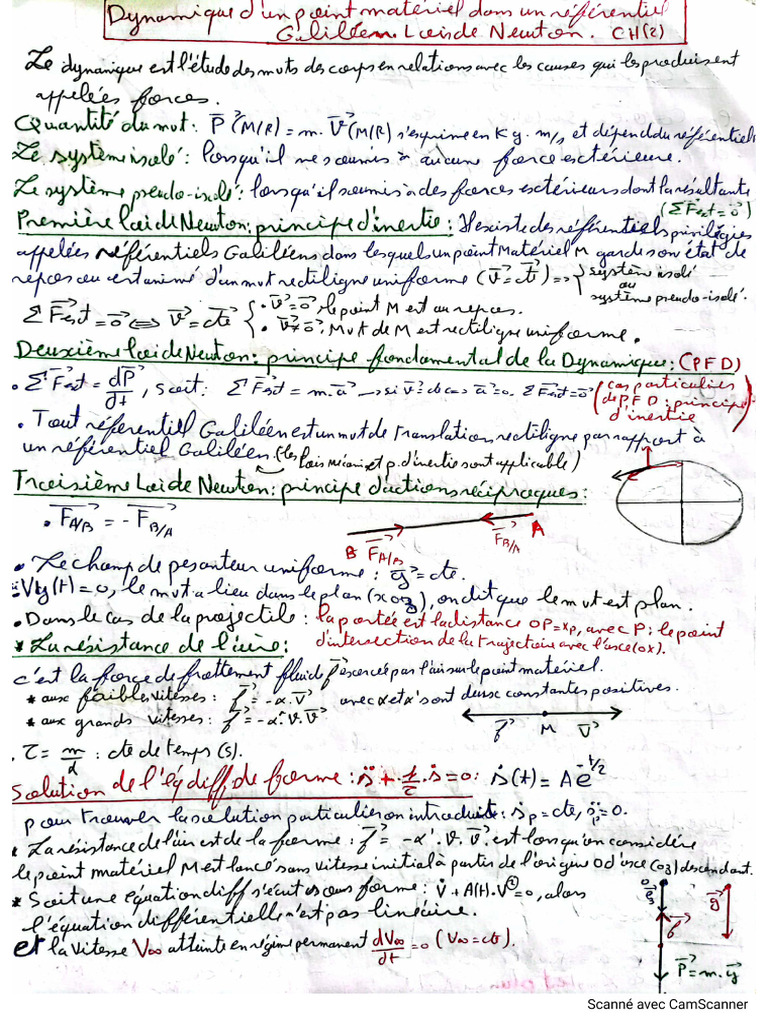 Dynamique d'un point matériel dans un référentiel
Galiléen Lois de Newton. CH(2)
Le dynamique est l'étude des mvts des corps en relations avec les causes qui les produisent
appelées forces.
Quantité du mvt: P⃗(M/R) = m. V⃗(M/R) s'exprime en Kg. m/s, et dépend du référentiel.
Le système isolé: lorsqu'il ne soumis à aucune force extérieure.
Le système pseudo-isolé: lorsqu'il soumis à des forces extérieurs dont la résultante
(ΣF⃗ext = 0⃗)
Première loi de Newton: principe d'inertie: Il existe des référentiels privilégies
appelées référentiels Galiléens dans lesquels un point Matériel M garde son état de
repos ou est animé d'un mvt rectiligne uniforme (v⃗ = cte⃗) => système isolé
ou
système pseudo-isolé.
ΣF⃗ext = 0⃗ <=> v⃗ = cte⃗ { • v⃗ = 0⃗ : le point M est au repos.
• v⃗ ≠ 0⃗ : Mvt de M est rectiligne uniforme.
Deuxième loi de Newton: principe fondamental de la Dynamique: (PFD)
• ΣF⃗ext = dP⃗/dt, soit: ΣF⃗ext = m.a⃗ → si v⃗ cte => a⃗ = 0. ΣF⃗ext = 0⃗ (cas particulier
de PFD: principe
d'inertie)
• Tout référentiel Galiléen est un mvt de translation rectiligne par rapport à
un référentiel Galiléen (les lois mécani et p. d'inertie sont applicable)
Troisième Loi de Newton: principe d'actions réciproques:
• F⃗A/B = - F⃗B/A
B F⃗A/B F⃗B/A A
• Le champ de pesanteur uniforme: g⃗ = cte.
Vy(t) = 0, le mvt a lieu dans le plan (xoz), on dit que le mvt est plan.
• Dans le cas de la projectile: la portée est la distance OP = xp, avec P: le point
d'intersection de la trajectoire avec l'axe (ox).
* La résistance de l'aire:
c'est la force de frottement fluide f⃗ exercée par l'air sur le point matériel.
* aux faibles vitesses: f⃗ = -α.V⃗ avec α et α' sont deux constantes positives.
* aux grands vitesses: f⃗ = -α'.V.V⃗
f⃗ M V⃗
. τ = m/α : cte de temps (s).
Solution de l'éq diff de forme: s̈ + 1/τ . ṡ = 0: ṡ(t) = A e^-1/2
pour trouver la solution particulier on introduit: ṡp = cte, s̈p = 0.
* La résistance de l'air est de la forme: f⃗ = -α'.v.v⃗. est lorsqu'on considére
le point matériel M est lancé sans vitesse initial à partir de l'origine O d'axe (oz) descendant.
* Soit une équation diff s'écrit sous forme: V̇ + A(t).V² = 0, alors
l'équation différentielle n'est pas linéaire.
et la vitesse V∞ atteinte en régime permanent dV∞/dt = 0 (V∞ = cte).
f⃗
g⃗
P⃗ = m.g⃗
Scanné avec CamScanner